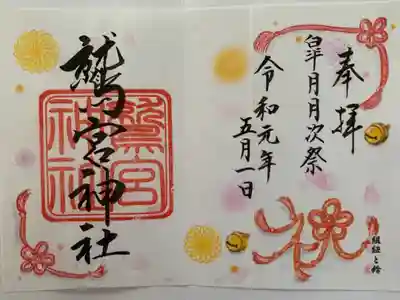 奉拝
皐月月次祭
令和元年
五月一日
祝
組紐と鈴
鷲宮神社
鷲宮
神社